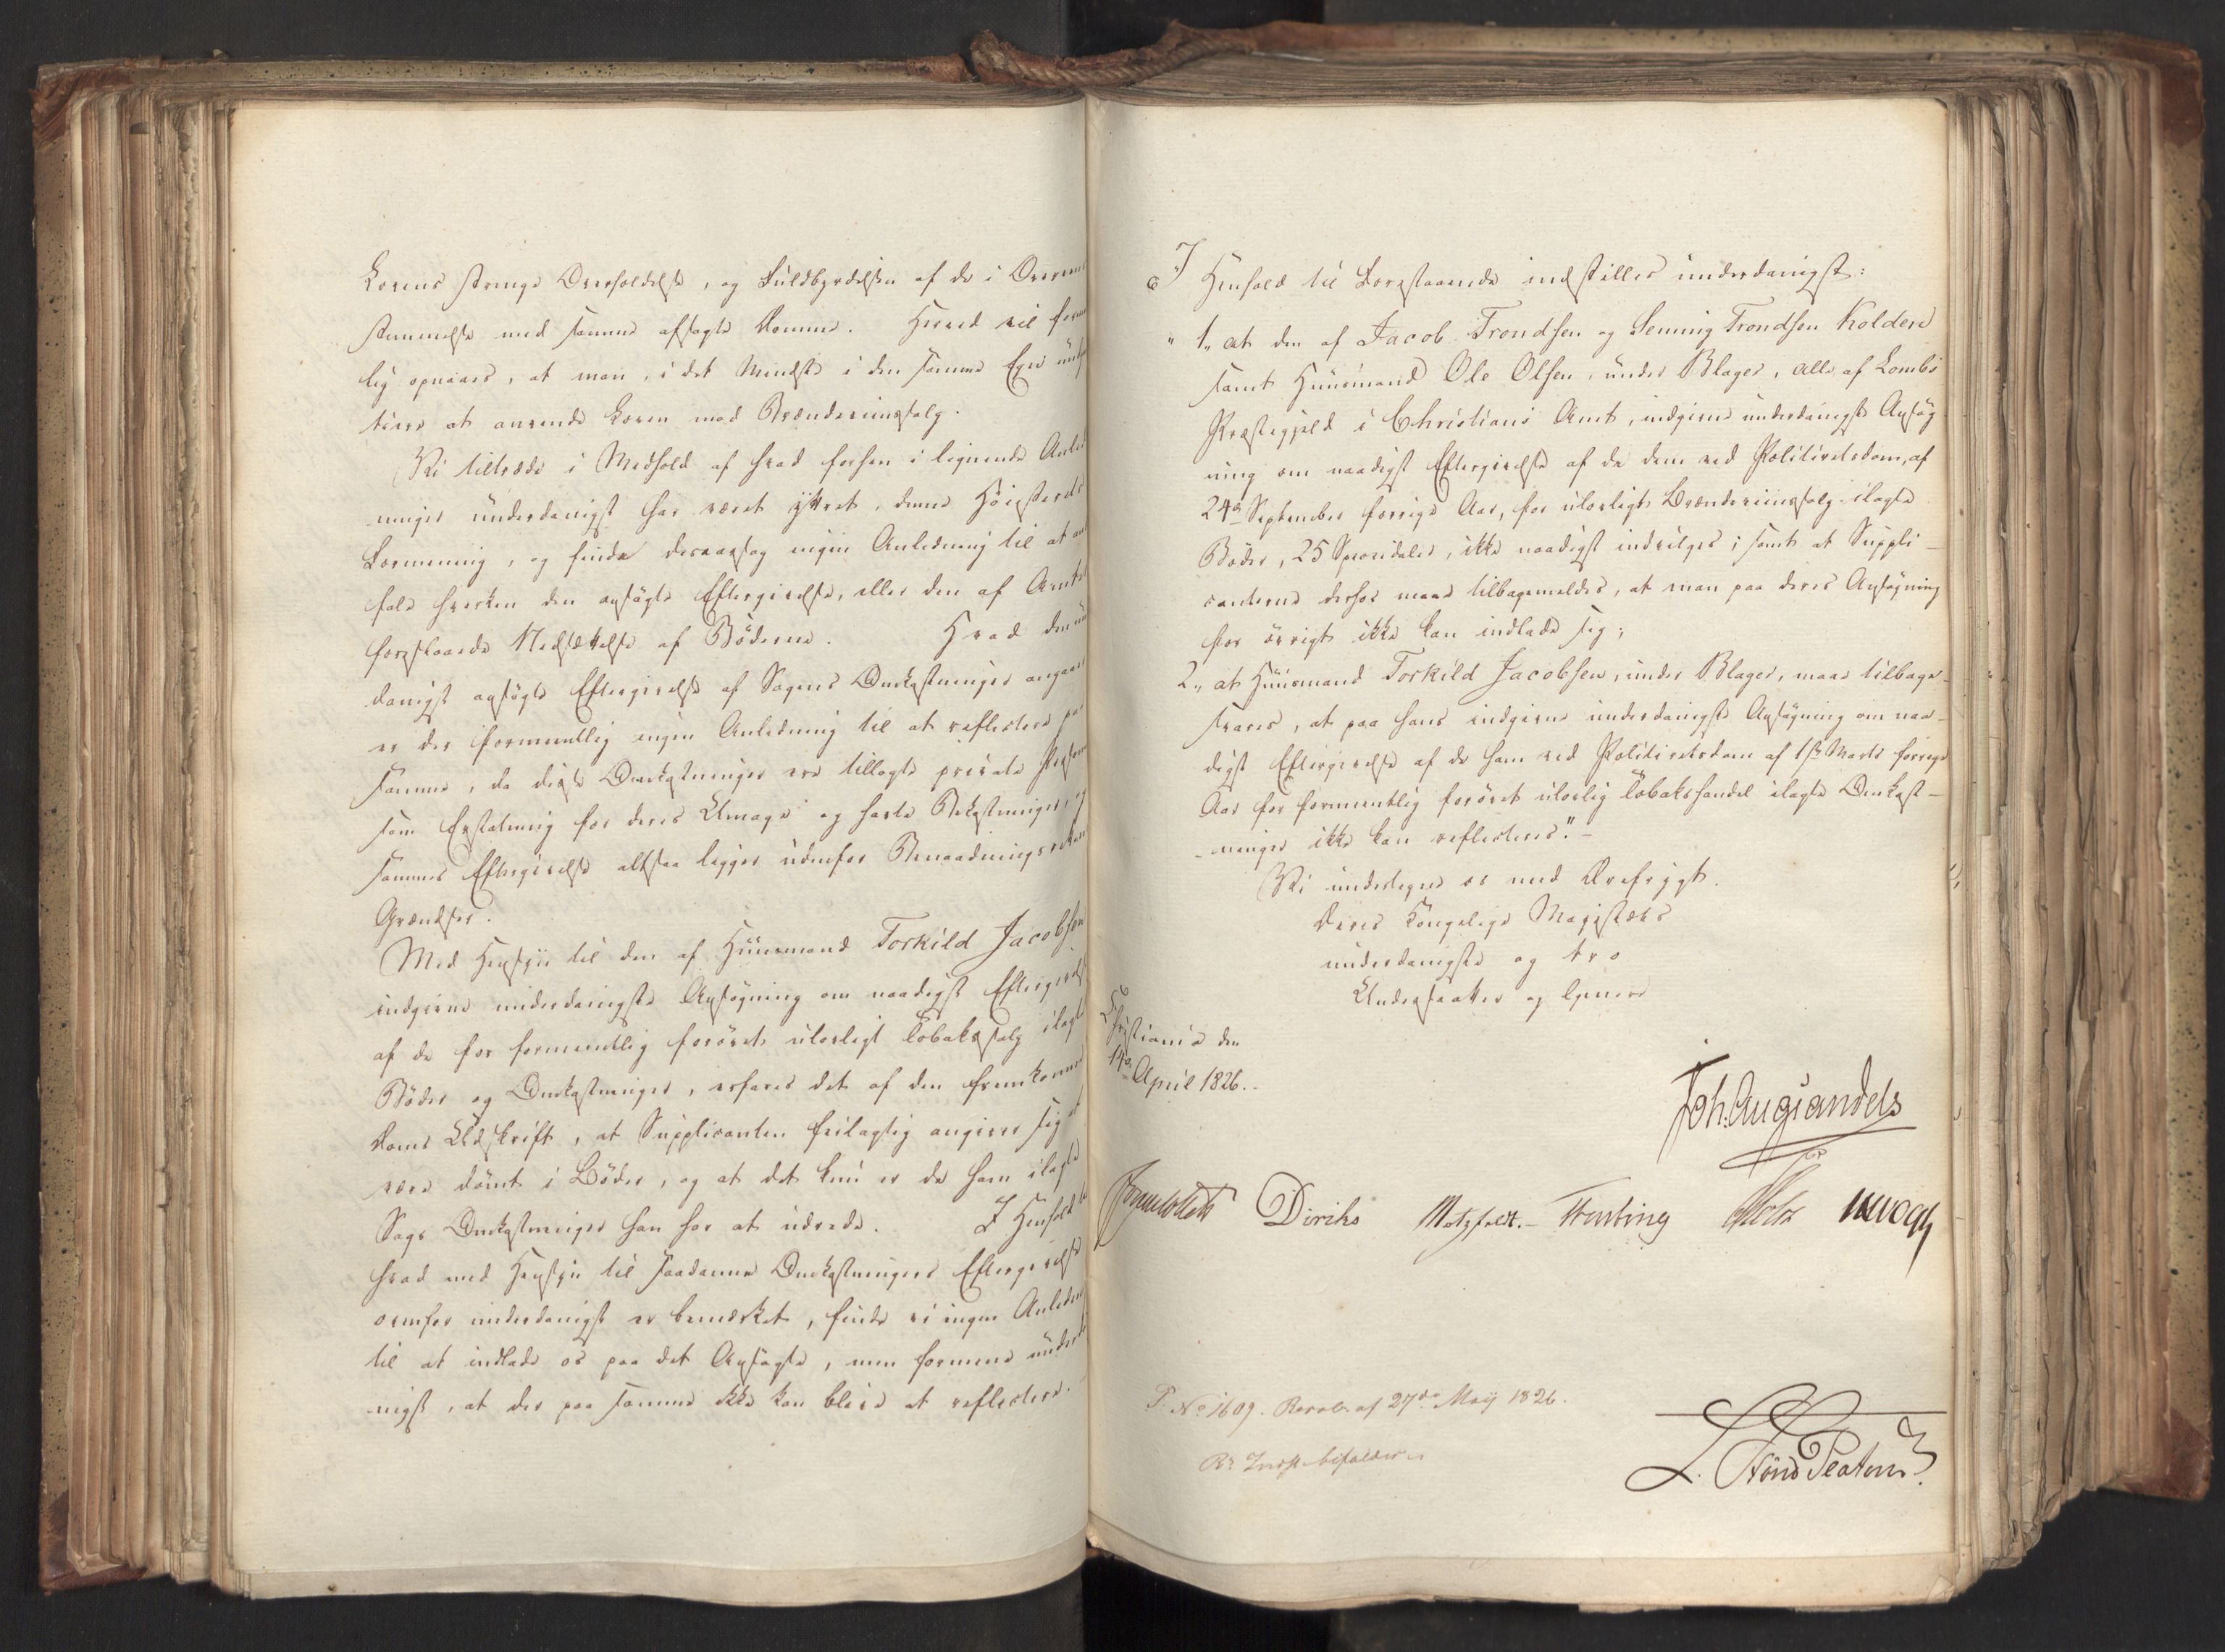 Lovens strenge Overholdelse, og Fuldbyrdelsen af de i Overens
stemmelse med samme afsagte Domme. Herved vil formeent
lig opnaaes, at man, i det Mindste i den samme Egn und
seer at anvende Loven mod Brændeviinssalg.
Vi tiltræde i Medhold af hvad forhen i lignende Anled
ninger underdanigst har været yttret, denne Höiesterets
Formening, og finde desaarsag ingen Anledning til at an
fale hverken den ansögte Eftergivelse, eller den af Amtet
foreslaaede Nedsættelse af Böderne. Hvad den under
danigst ansögte Eftergivelse af Sagens Omkostninger angaaer
er der formeentlig ingen Anledning til at reflectere paa
samme, da disse Omkostninger ere tillagte private Personer
som Erstatning for deres Umage og havte Bekostninger, og
sammes Eftergivelse altsaa ligger udenfor Benaadningsrettens
Grændser.
Med Hensyn til den af Huusmand Torkild Jacobsen
indgivne underdanigste Ansögning om naadigst Eftergivelse
af de for formeentlig forövet ulovligt Tobakssalg ilagte
Böder og Omkostninger, erfares det af den fremkomne
Doms Udskrift, at Supplicanten feilagtig angiver sig at
være dömt i Böder, og at det kun er de ham ilagte
Sags Omkostninger han har at udrede. I Henhold til
hvad med Hensyn til saadanne Omkostningers Eftergivelse
ovenfor underdanigst er bemærket, finde vi ingen Anledning
til at indlade os paa det Ansögte, men formene underda
nigst, at der paa samme ikke kan blive at reflectere.
I Henhold til Forestaaende indstilles underdanigst:
"1, at den af Jacob Trondsen og Leming Trondsen Kolden
samt Huusmand Ole Olsen, under Blager, alle af Lombs
Præstegjeld i Christians Amt, indgivne underdanigste Ansög
ning om naadigst Eftergivelse af de dem ved Politieretsdom, af
24de September forrige Aar, for ulovligt Brændeviinssalg ilagte
Böder, 25 Speciedaler, ikke naadigst indvilges; samt at Suppli-
canterne derhos maae tilbagemeldes, at man paa deres Ansögning
for övrigt ikke kan indlade sig;
2, at Huusmand Torkild Jacobsen, under Blager, maae tilbage-
svares, at paa hans indgivne underdanigste Ansögning om naa-
digst Eftergivelse af de ham ved Politieretsdom af 1ste Marts forrige
Aar for formeentlig forövet ulovlig Tobakshandel ilagte Omkost-
-ninger ikke kan reflecteres".-
Vi undertegne os med Ærefrygt.
Deres Kongelige Majestæts
underdanigste og tro
Undersaatter og Tjenere
Christiania den
14de April 1826.
Joh. Aug. Sandels
Sommerhielm Diriks Motzfeldt.- Treschow Holst JHVogt
P. No 1609. Resol. af 27de Maij 1826.
Rs Indst. bifaldes
L. Röös Peatour